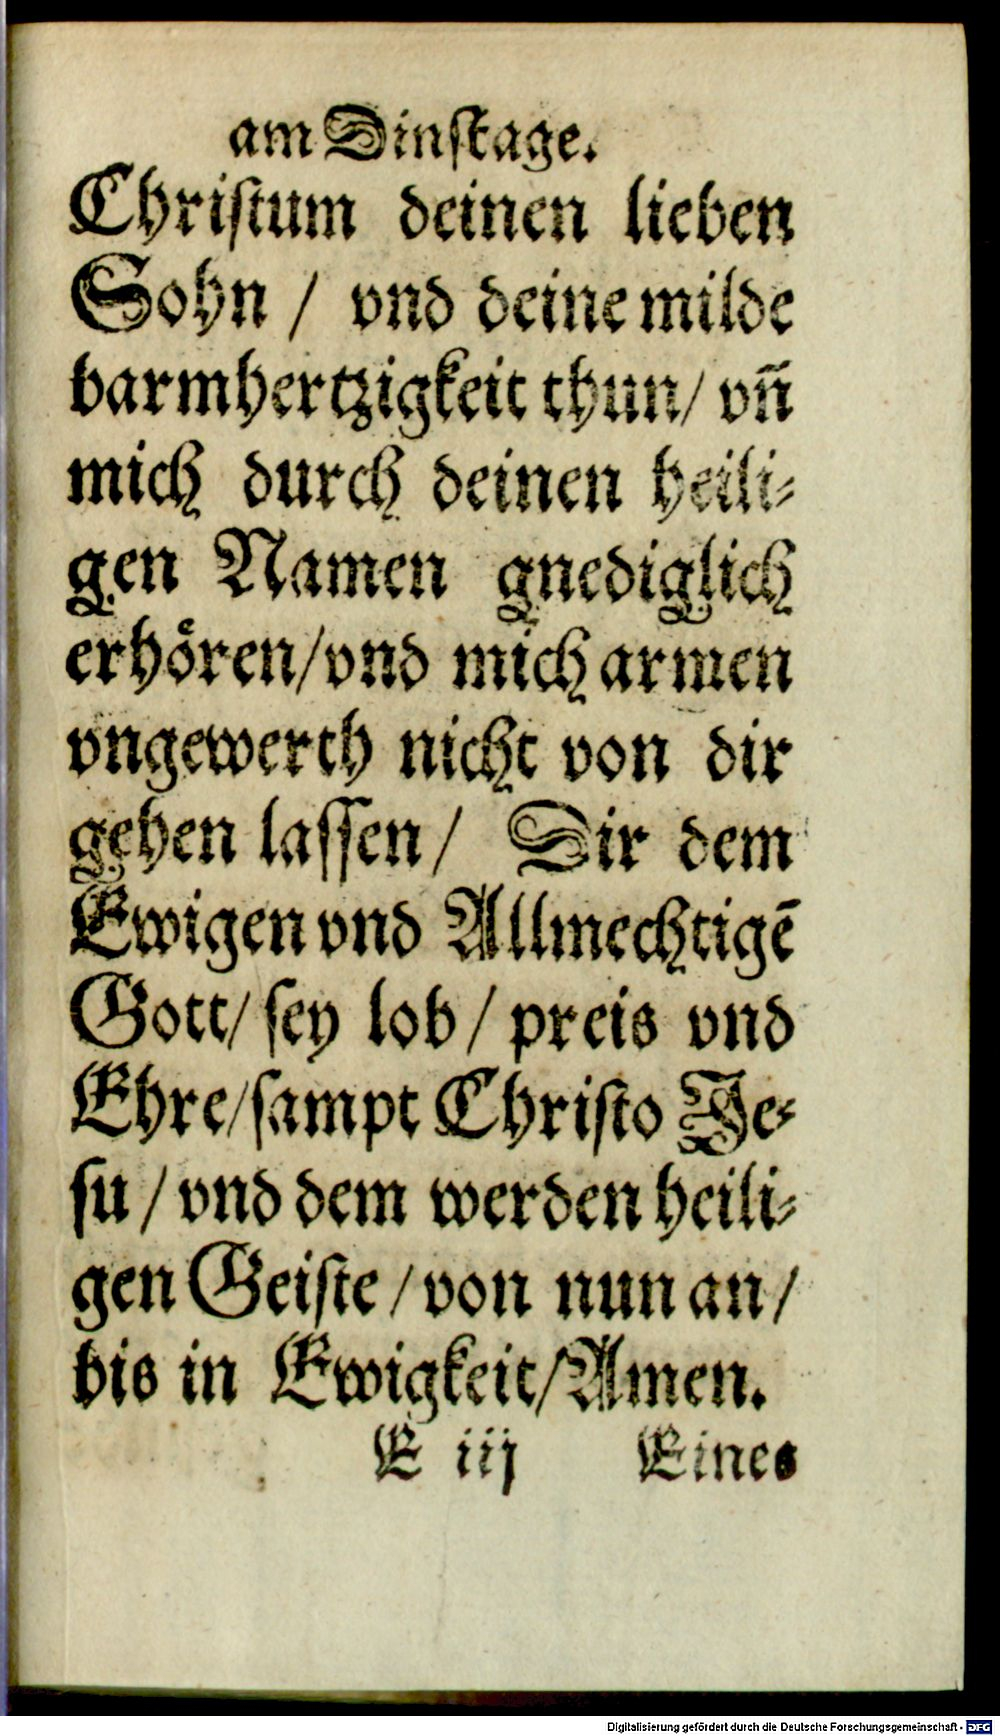 am Dinſtage.
Chriſtum deinen lieben
Sohn / vnd deine milde
barmhertzigkeit thun / vñ
mich durch deinen heili-
gen Namen gnediglich
erhoͤren / vnd mich armen
vngewerth nicht von dir
gehen laſſen / Dir dem
Ewigen vnd Allmechtigē
Gott / ſey lob / preis vnd
Ehre / ſampt Chriſto Je-
ſu / vnd dem werden heili-
gen Geiſte / von nun an /
bis in Ewigkeit / Amen.
E iij Eines
Digitalisierung gefördert durch die Deutsche Forschungsgemeinschaft - DFG